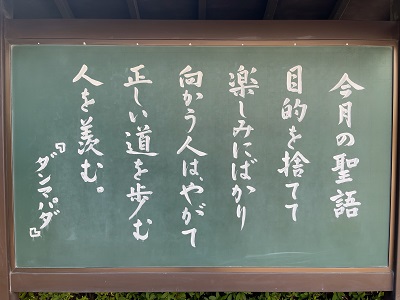 今月の聖語
目的を捨てて
楽しみにばかり
向かう人は、やがて
正しい道を歩む
人を羨む。
『ダンマパダ』